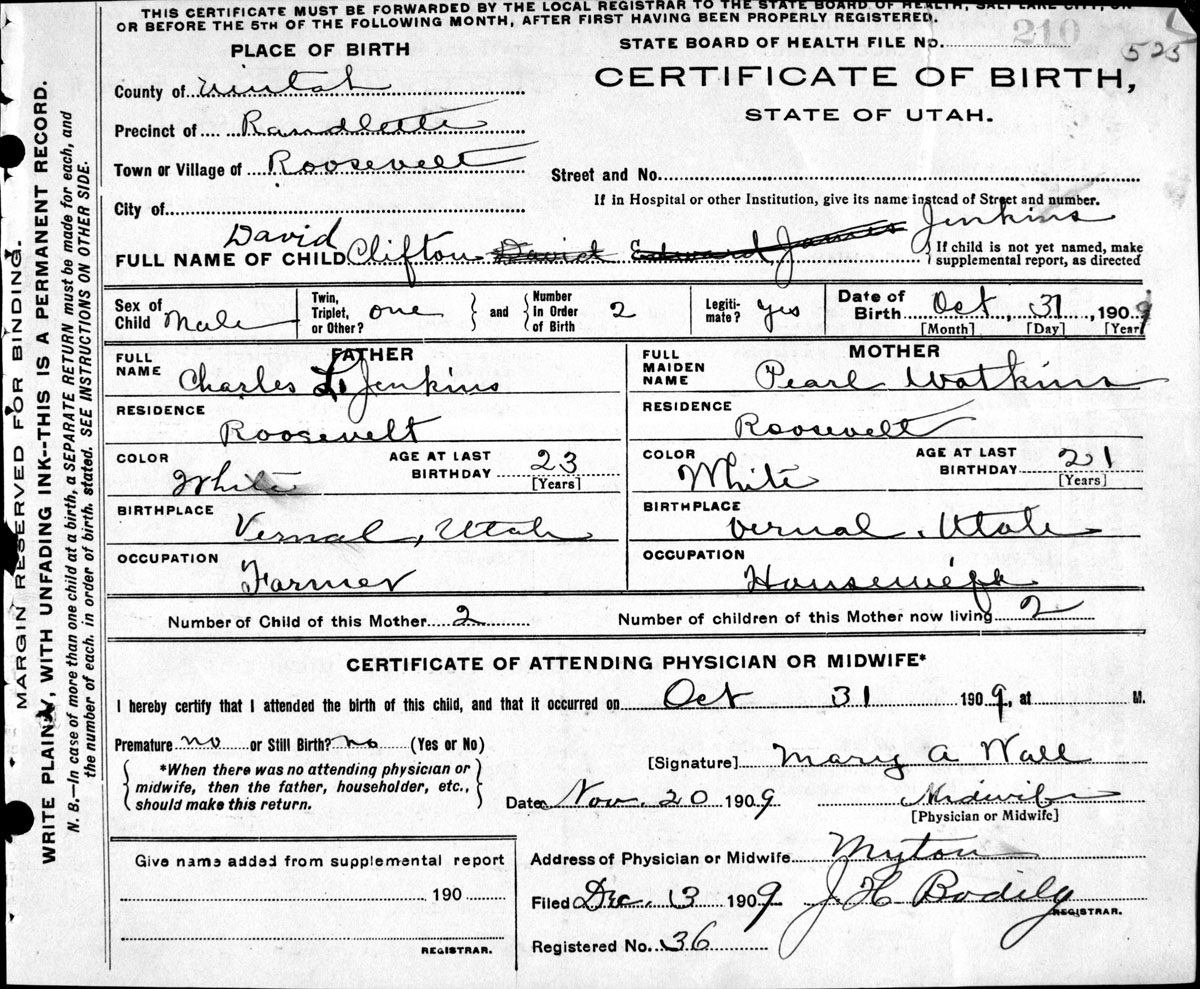 THIS CERTIFICATE MUST BE FORWARDED BY THE LOCAL REGISTRAR TO THE STATE BOARD OF HEALTH, SALT LAKE CITY, ON
OR BEFORE THE 5TH OF THE FOLLOWING MONTH, AFTER FIRST HAVING BEEN PROPERLY REGISTERED.
PLACE OF BIRTH
STATE BOARD OF HEALTH FILE No. 210
525
County of Uintah
CERTIFICATE OF BIRTH,
STATE OF UTAH.
Precinct of Randlette
Town or Village of Roosevelt
Street and No.
City of
If in Hospital or other Institution, give its name instead of Street and number.
David
FULL NAME OF CHILD Clifton David Edward James Jenkins
If child is not yet named, make
supplemental report, as directed
Sex of Child Male
Twin, Triplet, or Other? one and Number In Order of Birth 2
Legitimate? yes
Date of Birth Oct 31, 1909
[Month] [Day] [Year]
FATHER
FULL NAME Charles L. Jenkins
RESIDENCE
Roosevelt
COLOR White AGE AT LAST BIRTHDAY 23
[Years]
BIRTHPLACE
Vernal, Utah
OCCUPATION
Farmer
MOTHER
FULL MAIDEN NAME Pearl Watkins
RESIDENCE
Roosevelt
COLOR White AGE AT LAST BIRTHDAY 21
[Years]
BIRTHPLACE
Vernal, Utah
OCCUPATION
Housewife
Number of Child of this Mother 2 Number of children of this Mother now living 2
CERTIFICATE OF ATTENDING PHYSICIAN OR MIDWIFE*
I hereby certify that I attended the birth of this child, and that it occurred on Oct 31 1909, at M.
Premature no or Still Birth? no (Yes or No)
*When there was no attending physician or
midwife, then the father, householder, etc.,
should make this return.
[Signature] Mary A Wall
Date Nov. 20 1909 Midwife
[Physician or Midwife]
Give name added from supplemental report
190
REGISTRAR.
Address of Physician or Midwife Myton
Filed Dec. 13 1909 J H Bodily
REGISTRAR.
Registered No. 36
MARGIN RESERVED FOR BINDING.
WRITE PLAINLY, WITH UNFADING INK--THIS IS A PERMANENT RECORD.
N. B.—In case of more than one child at a birth, a SEPARATE RETURN must be made for each, and
the number of each, in order of birth, stated. SEE INSTRUCTIONS ON OTHER SIDE.